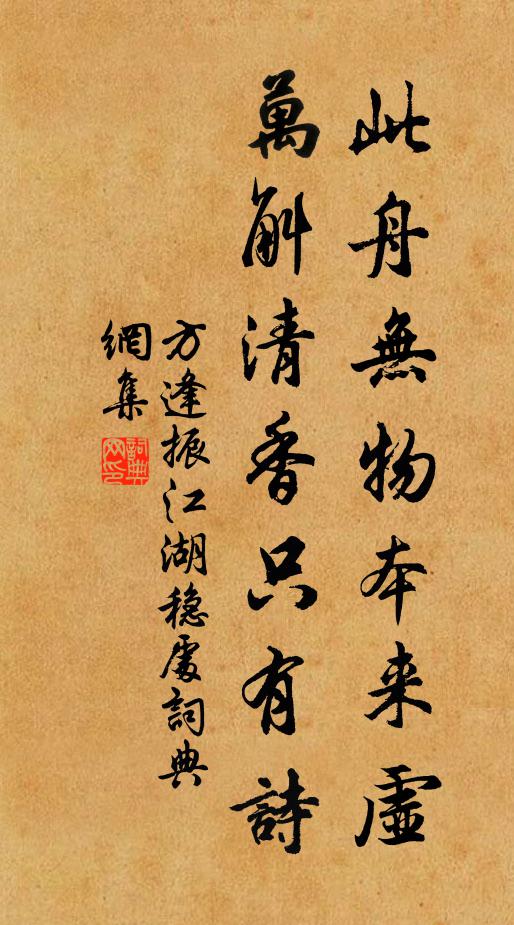 此舟無物本来虛
萬斛清香只有詩
方逢振江湖穏處詞典
網集
詞典网印